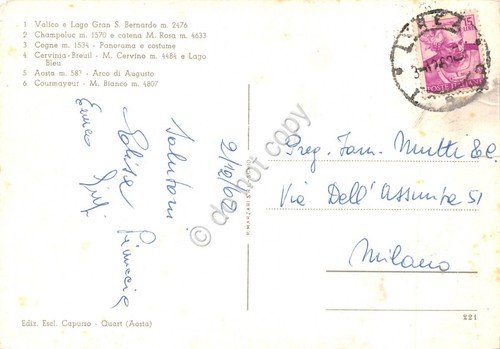 1 Valico e Lago Gran S. Bernardo m. 2476
2 Champoluc m. 1570 e catena M. Rosa m. 4633
3 Cogne m. 1534 - Panorama e costume
4 Cervinia-Breuil - M. Cervino m. 4484 e Lago
Bleu
5 Aosta m. 583 - Arco di Augusto
6 Courmayeur - M. Bianco m. 4807
2/12/62
Saluti
do not copy
15
POSTE ITALIANE
Preg. Fam. Mutti E.C.
Via Dell'Assunta 51
Milano
Ediz. Escl. Capurso - Quart (Aosta)
221